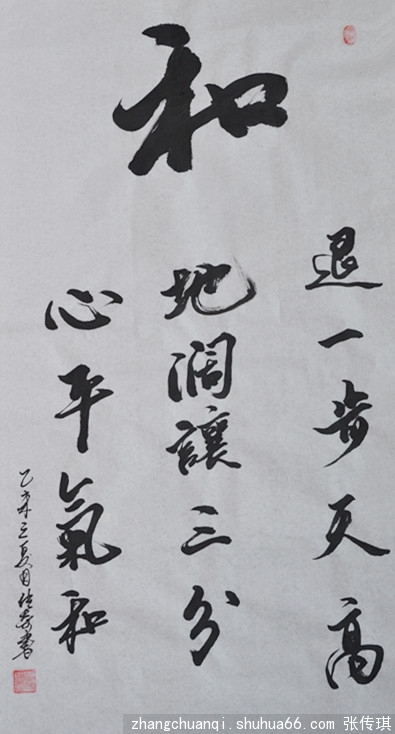 和
退一步天高
地濶讓三分
心平氣和
乙未之夏月传琪書
zhangchuanqi.shuhua66.com 张传琪